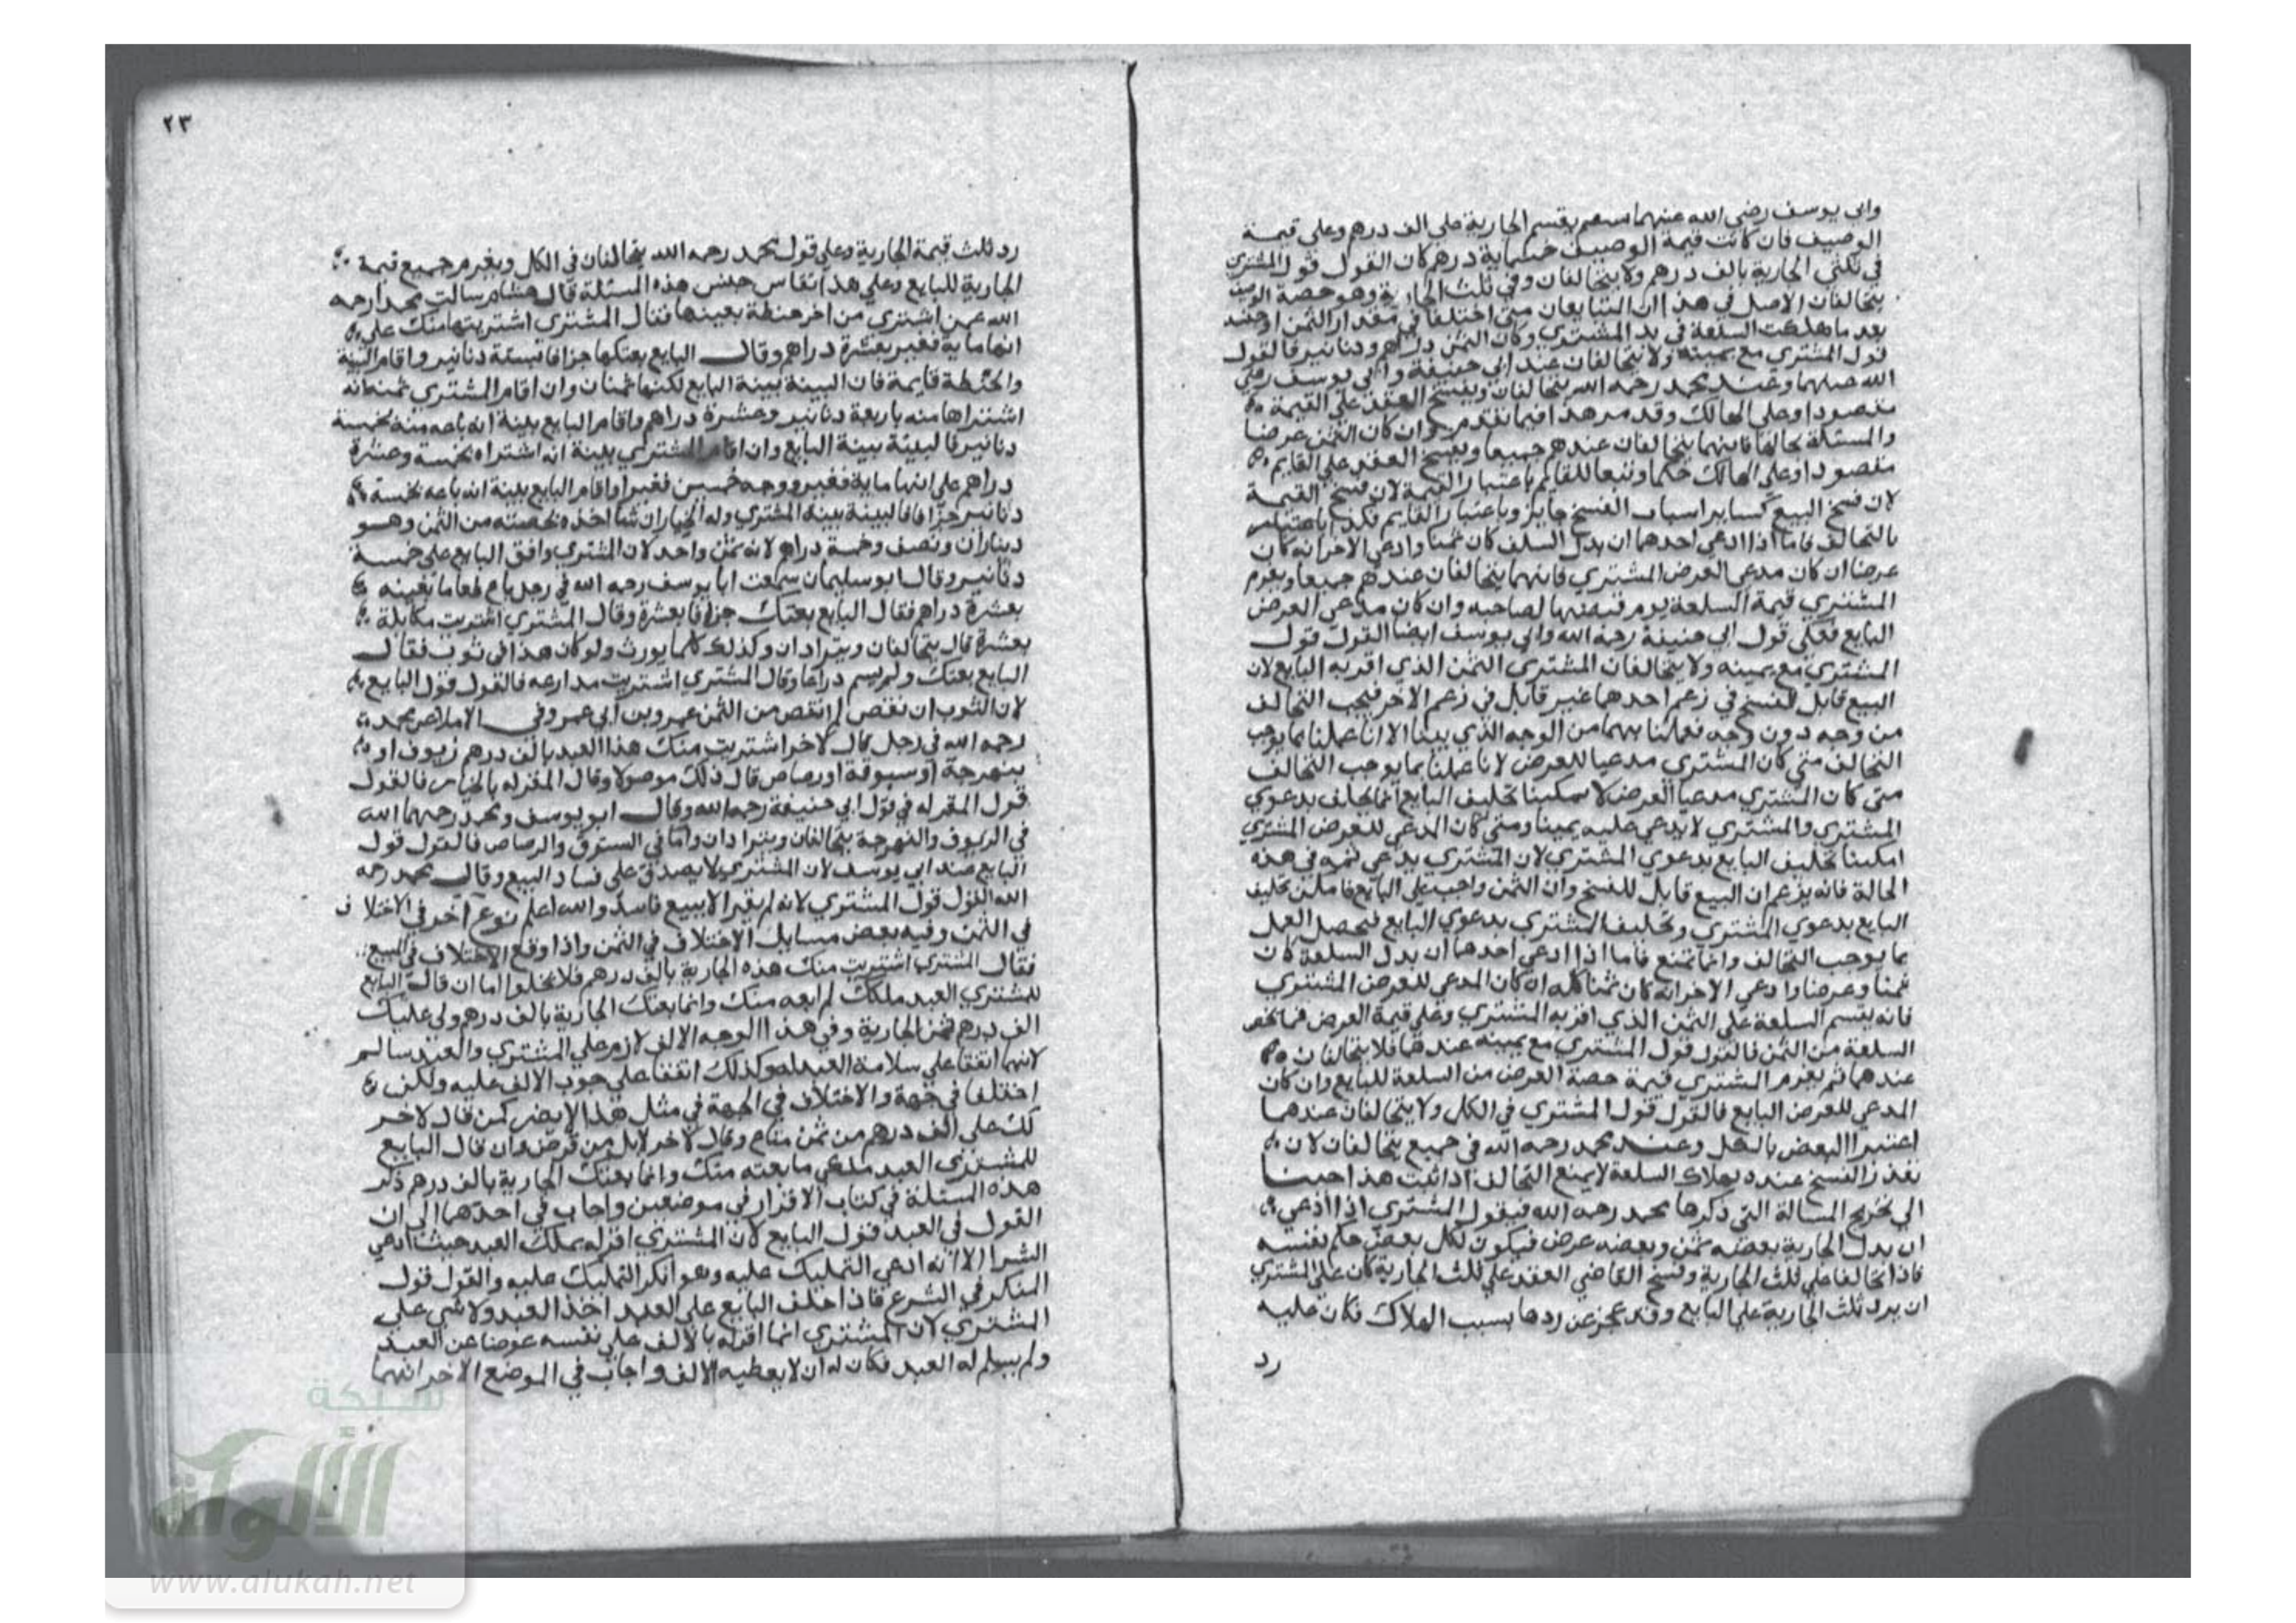 وابي يوسف رضي الله عنهما يقسم الجارية على الف درهم وعلى قيمة
الوصيف فان كانت قيمة الوصيف خمسماية درهم كان القول قول المشتري
في ثلثي الجارية بالف درهم ولا يتحالفان وفي ثلث الجارية وهو حصة
يتحالفان الاصل في هذا ان المتبايعان متى اختلفا في مقدار الثمن
بعد ما هلكت السلعة في يد المشتري وكان الثمن دراهم ودنانير فالقول
قول المشتري مع يمينه ولا يتحالفان عند ابي حنيفة وابي يوسف رضي
الله عنهما وعند محمد رحمه الله يتحالفان ويفسخ العقد على القيمة
مقصودا وعلى الهالك وقد مر هذا فيما تقدم وان كان الثمن عرضا
والمسئلة بحالها فانهما يتحالفان عندهم جميعا ويفسخ العقد على القايم
مقصودا وعلى الهالك حكما وتبعا للقايم باعتبار القيمة لان فسخ القيمة
لان فسخ البيع كساير اسباب الفسخ جايز وباعتبار القايم فكذا
بالتحالف فاما اذا ادعى احدهما ان بدل السلف كان ثمنا وادعى الاخر انه كان
عرضا ان كان مدعى العرض المشتري فانهما يتحالفان عندهم جميعا ويغرم
المشتري قيمة السلعة يوم قبضها لصاحبه وان كان مدعي العرض
البايع فعلى قول ابي حنيفة رحمه الله وابي يوسف ايضا القول قول
المشتري مع يمينه ولا يتحالفان المشتري الثمن الذي اقر به البايع لان
البيع قابل للفسخ في زعم احدهما غير قابل في زعم الاخر فيجب التحالف
من وجه دون وجه فعملنا بهما من الوجه الذي بينا الا انا عملنا بما يوجب
التحالف متى كان المشتري مدعيا للعرض لانا عملنا بما يوجب التحالف
متى كان المشتري مدعيا العرض لا يمكننا تحليف البايع انما يحلف بدعوي
المشتري والمشتري لا يدعي عليه يمينا ومتى كان المدعي للعرض المشتري
امكننا تحليف البايع بدعوي المشتري لان المشتري يدعي في هذه
الحالة فانه يزعم ان البيع قابل للفسخ وان الثمن واجب على البايع فامكن تحليف
البايع بدعوي المشتري وتحليف المشتري بدعوي البايع فيحصل العمل
بما يوجب التحالف وانما يمتنع فاما اذا ادعى احدهما ان بدل السلعة كان
ثمنا وعرضا وادعى الاخر انه كان ثمنا كله ان كان المدعي للعرض المشتري
فانه يقسم السلعة على الثمن الذي اقر به المشتري وعلى قيمة العرض فما يخص
السلعة من الثمن فالقول قول المشتري مع يمينه عندهما فلا يتحالفان
عندهما ثم يغرم المشتري قيمة حصة العرض من السلعة للبايع وان كان
المدعي للعرض البايع فالقول قول المشتري في الكل ولا يتحالفان عندهما
اعتبرا البعض بالكل وعند محمد رحمه الله في جميع يتحالفان لان
تعذر الفسخ عنده بهلاك السلعة لا يمنع التحالف اذا ثبت هذا جينا
الى تخريج المسالة التي ذكرها محمد رحمه الله فيقول المشتري اذا ادعي
ان بدل الجارية بعضه ثمن وبعضه عرض فيكون لكل بعض حكم نفسه
فاذا تحالفا على ثلث الجارية وفسخ القاضي العقد على ثلث الجارية كان على المشتري
ان يرد ثلث الجارية على البايع وقد عجز عن ردها بسبب الهلاك فكان عليه
رد
٢٣
رد ثلث قيمة الجارية وعلى قول محمد رحمه الله يتحالفان في الكل ويغرم جميع قيمة
الجارية للبايع وعلى هذا تقاس جنس هذه المسئلة قال هشام سالت محمدا رحمه
الله عمن اشترى من اخر حنطة بعينها فقال المشتري اشتريتها منك على
انها ماية قفيز بعشرة دراهم وقال البايع بعتكها جزافا بستة دنانير واقاما البينة
والحنطة قايمة فان البينة بينة البايع لكنها ثمنان وان اقام المشتري بينة انه
اشتراها منه باربعة دنانير وعشرة دراهم واقام البايع بينة انه باعه منه بخمسة
دنانير فالبينة بينة البايع وان اقام المشتري بينة انه اشتراه بخمسة وعشرة
دراهم على انها ماية قفيز ووجه خمسين قفيزا واقام البايع بينة انه باعه بخمسة
دنانير جزافا فالبينة بينة المشتري وله الخيار ان شا اخذه بحصته من الثمن وهو
ديناران ونصف وخمسة دراهم لانه ثمن واحد لان المشتري وافق البايع على خمسة
دنانير وقال ابو سليمان سمعت ابا يوسف رحمه الله في رجل باع طعاما بعينه
بعشرة دراهم فقال البايع بعتك جزافا بعشرة وقال المشتري اشتريت مكايلة
بعشرة قال يتحالفان ويترادان وكذلك كلما يوزن ولو كان هذا في ثوب فقال
البايع بعتك ولم يسم ذراعا وقال المشتري اشتريت مذارعه فالقول قول البايع
لان الثوب ان نقص لم ينقص من الثمن عمرو بن ابي عمرو في الاملا عن محمد
رحمه الله في رجل قال لاخر اشتريت منك هذا العبد بالف درهم زيوف او
بنهرجة او ستوقة او رصاص قال ذلك موصولا وقال المقر له بالجياد فالقول
قول المقر له في قول ابي حنيفة رحمه الله وقال ابو يوسف ومحمد رحمهما الله
في الزيوف والنهرجة يتحالفان ويترادان واما في الستوق والرصاص فالقول قول
البايع عند ابي يوسف لان المشتري لا يصدق على فساد البيع وقال محمد رحمه
الله القول قول المشتري لانه لم يقر الا ببيع فاسد والله اعلم نوع آخر في الاختلاف
في الثمن وفيه بعض مسايل الاختلاف في الثمن واذا وقع الاختلاف في المبيع
فقال المشتري اشتريت منك هذه الجارية بالف درهم فلا يخلوا اما ان قال البايع
للمشتري العبد ملكك لم ابعه منك وانما بعتك الجارية بالف درهم ولي عليك
الف درهم ثمن الجارية وفي هذا الوجه الالف لازم على المشتري والعبد سالم
لانهما اتفقا على سلامة العبد له وكذلك اتفقا على وجوب الالف عليه ولكن
اختلفا في جهة والاختلاف في الجهة في مثل هذا لا يضر كمن قال لاخر
لك على الف درهم من ثمن متاع وقال الاخر لا بل من قرض وان قال البايع
للمشتري العبد ملكي ما بعته منك وانما بعتك الجارية بالف درهم ذكر
هذه المسئلة في كتاب الاقرار في موضعين واجاب في احدهما الى ان
القول في العبد قول البايع لان المشتري اقر له بملك العبد حيث ادعى
الشرا الا انه ادعى التمليك عليه وهو انكر التمليك عليه والقول قول
المنكر في الشرع فاذا حلف البايع على العبد اخذ العبد ولا شي على
المشتري لان المشتري انما اقر له بالالف على نفسه عوضا عن العبد
ولم يسلم له العبد فكان له ان لا يعطيه الالف واجاب في الموضع الاخر انهما
شبكة
الألوكة
www.alukah.net